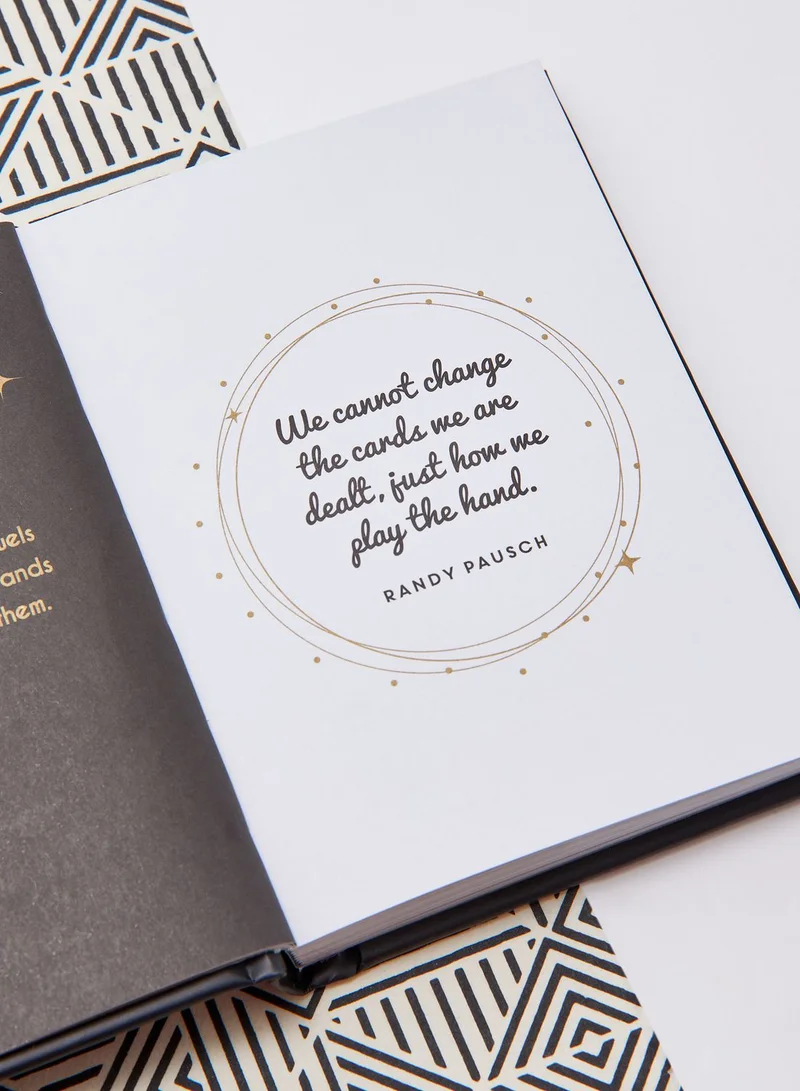 ands
them.
We cannot change
the cards we are
dealt, just how we
play the hand.
RANDY PAUSCH